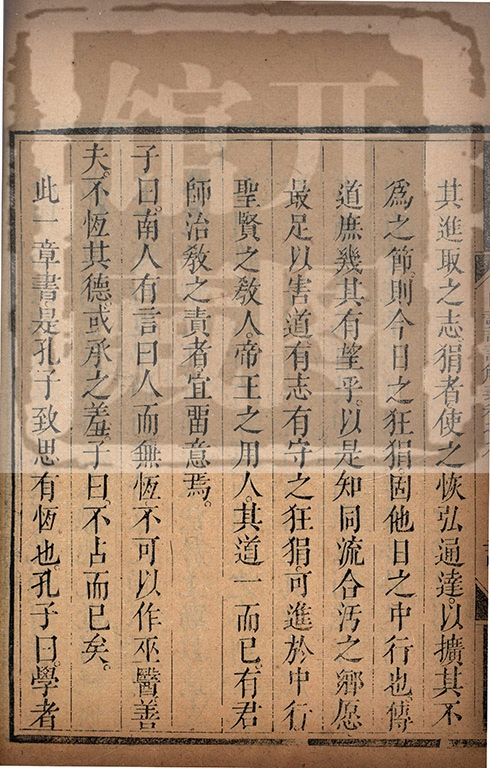 其進取之志。狷者使之恢弘通達。以擴其不
爲之節。則今日之狂狷。固他日之中行也。傳
道庶幾其有望乎。以是知同流合汚之鄉愿
最足以害道。有志有守之狂狷。可進於中行
聖賢之教人。帝王之用人。其道一而已。有君
師治敎之責者。宜畱意焉。
子曰。南人有言曰。人而無恆。不可以作巫醫。善
夫。不恆其德。或承之羞。子曰。不占而已矣。
此一章書。是孔子致思有恆也。孔子曰。學者